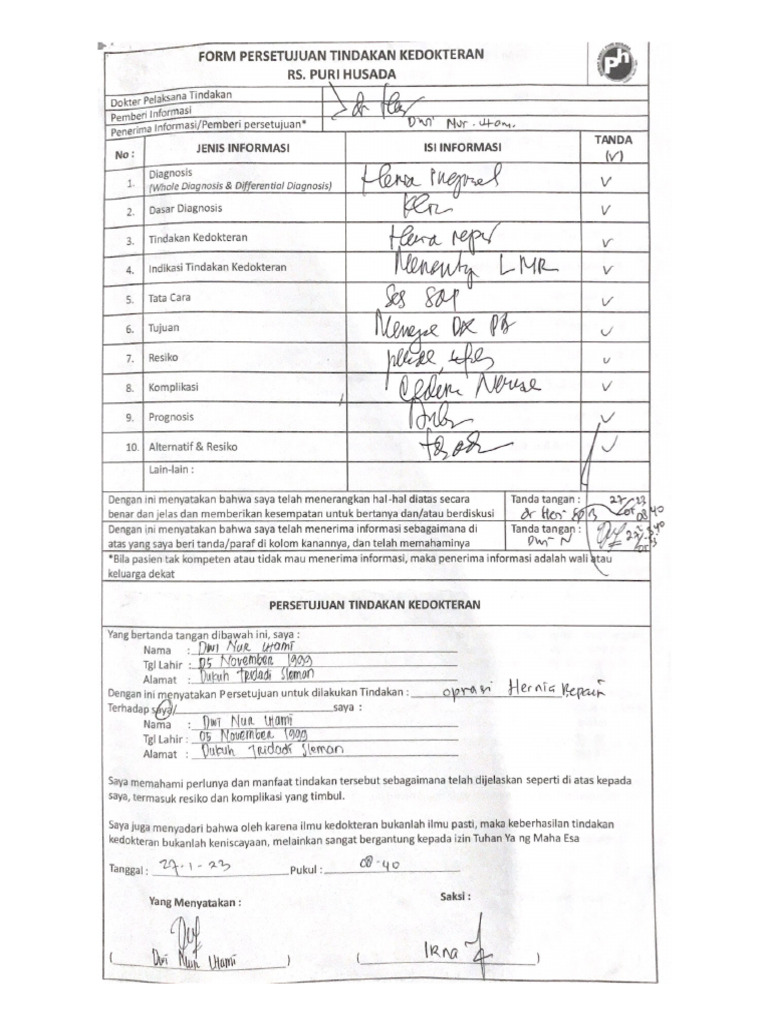 FORM PERSETUJUAN TINDAKAN KEDOKTERAN
RS. PURI HUSADA
ph
Dokter Pelaksana Tindakan
Pemberi Informasi
dr
Penerima Informasi/Pemberi persetujuan*
Dwi Nur. Utam.
No : JENIS INFORMASI ISI INFORMASI TANDA (√)
1. Diagnosis (Whole Diagnosis & Differential Diagnosis) Hernia √
2. Dasar Diagnosis √
3. Tindakan Kedokteran Hernia √
4. Indikasi Tindakan Kedokteran LMR √
5. Tata Cara √
6. Tujuan √
7. Resiko √
8. Komplikasi √
9. Prognosis √
10. Alternatif & Resiko √
Lain-lain :
Dengan ini menyatakan bahwa saya telah menerangkan hal-hal diatas secara
benar dan jelas dan memberikan kesempatan untuk bertanya dan/atau berdiskusi
Tanda tangan :
dr
Dengan ini menyatakan bahwa saya telah menerima informasi sebagaimana di
atas yang saya beri tanda/paraf di kolom kanannya, dan telah memahaminya
Tanda tangan :
Dwi N
*Bila pasien tak kompeten atau tidak mau menerima informasi, maka penerima informasi adalah wali atau
keluarga dekat
PERSETUJUAN TINDAKAN KEDOKTERAN
Yang bertanda tangan dibawah ini, saya :
Nama : Dwi Nur Utami
Tgl Lahir : 05 November 1999
Alamat : Dukuh Tridadi Sleman
Dengan ini menyatakan Persetujuan untuk dilakukan Tindakan : oprasi Hernia Repair
Terhadap saya/ saya :
Nama : Dwi Nur Utami
Tgl Lahir : 05 November 1999
Alamat : Dukuh Tridadi Sleman
Saya memahami perlunya dan manfaat tindakan tersebut sebagaimana telah dijelaskan seperti di atas kepada
saya, termasuk resiko dan komplikasi yang timbul.
Saya juga menyadari bahwa oleh karena ilmu kedokteran bukanlah ilmu pasti, maka keberhasilan tindakan
kedokteran bukanlah keniscayaan, melainkan sangat bergantung kepada izin Tuhan Ya ng Maha Esa
Tanggal : 27-1-23 Pukul : 08-40
Yang Menyatakan : Saksi :
( Dwi Nur Utami ) ( Irna )